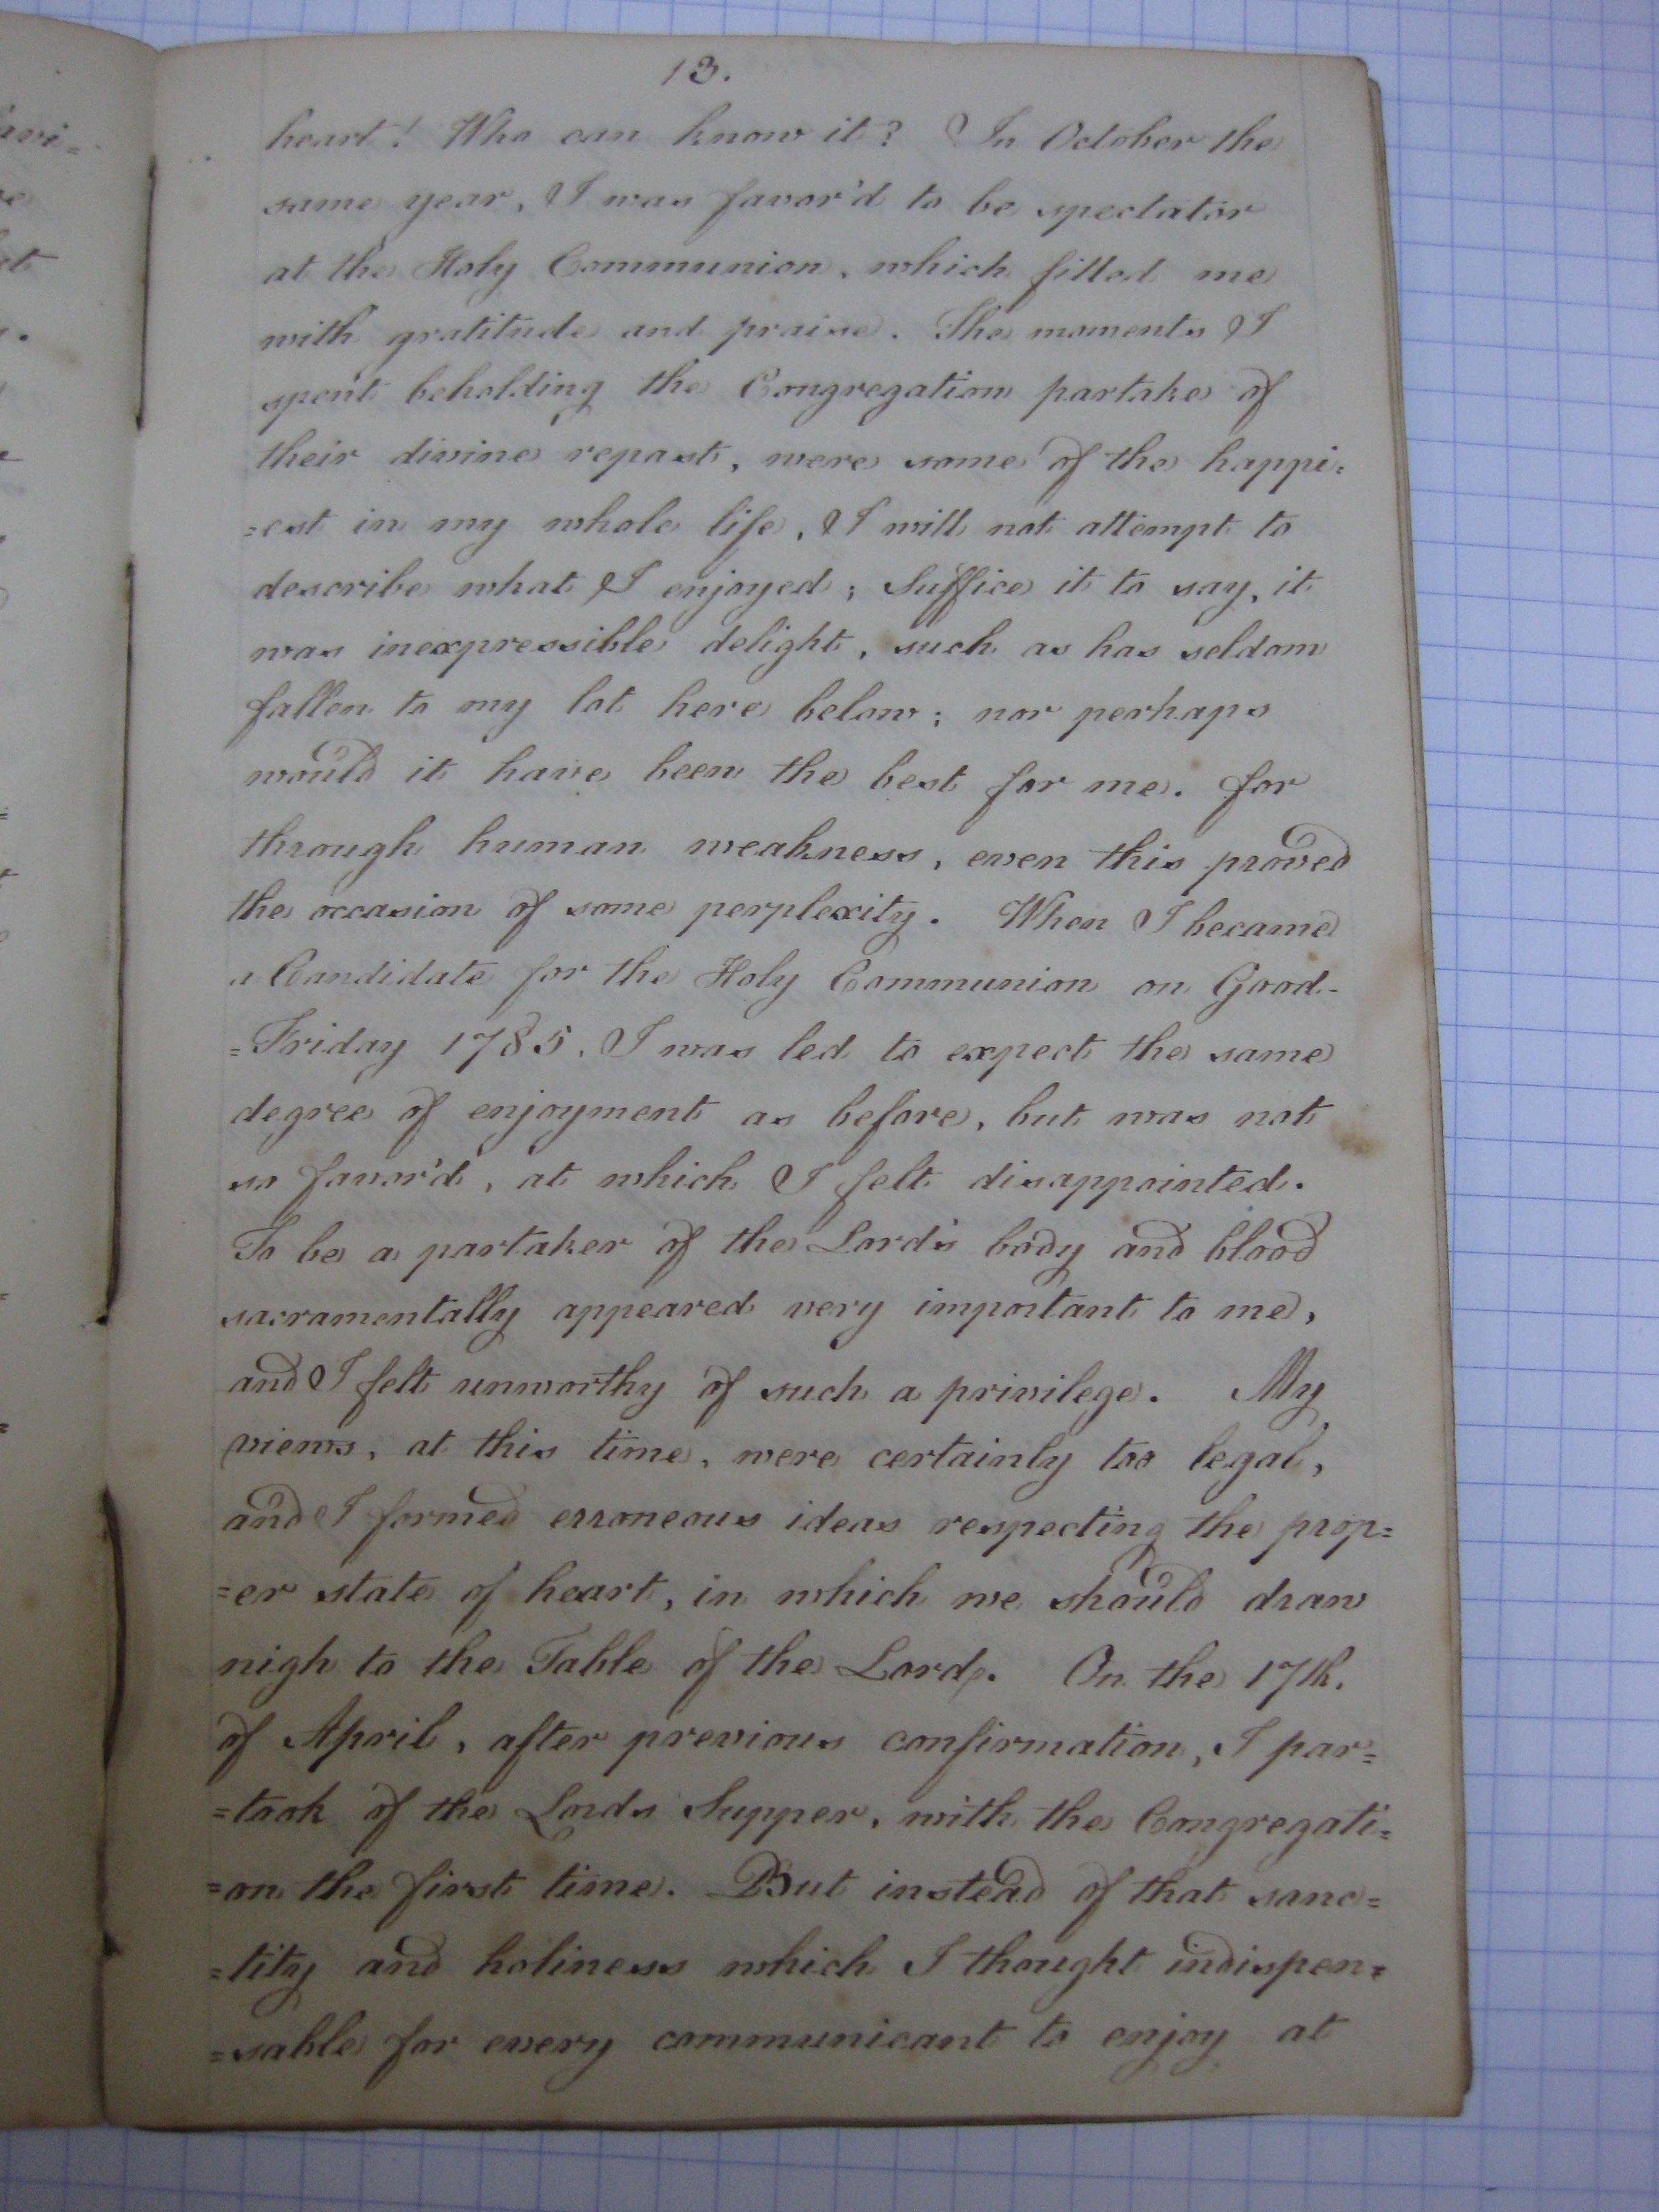 13.
heart! Who can know it? In October the
same year, I was favor'd to be spectator
at the Holy Communion, which filled me
with gratitude and praise. The moments I
spent beholding the Congregation partake of
their divine repast, were some of the happi=
=est in my whole life, I will not attempt to
describe what I enjoyed; Suffice it to say, it
was inexpressible delight, such as has seldom
fallen to my lot here below; nor perhaps
would it have been the best for me. for
through human weakness, even this proved
the occasion of some perplexity. When I became
a Candidate for the Holy Communion on Good-
=Friday 1785, I was led to expect the same
degree of enjoyment as before, but was not
so favor'd, at which I felt disappointed.
To be a partaker of the Lord's body and blood
sacramentally appeared very important to me,
and I felt unworthy of such a privilege. My
views, at this time, were certainly too legal,
and I formed erroneous ideas respecting the prop=
=er state of heart, in which we should draw
nigh to the Table of the Lord. On the 17th.
of April, after previous confirmation, I par=
=took of the Lords Supper, with the Congregati=
=on the first time. But instead of that sanc=
=tity and holiness which I thought indispen=
=sable for every communicant to enjoy at